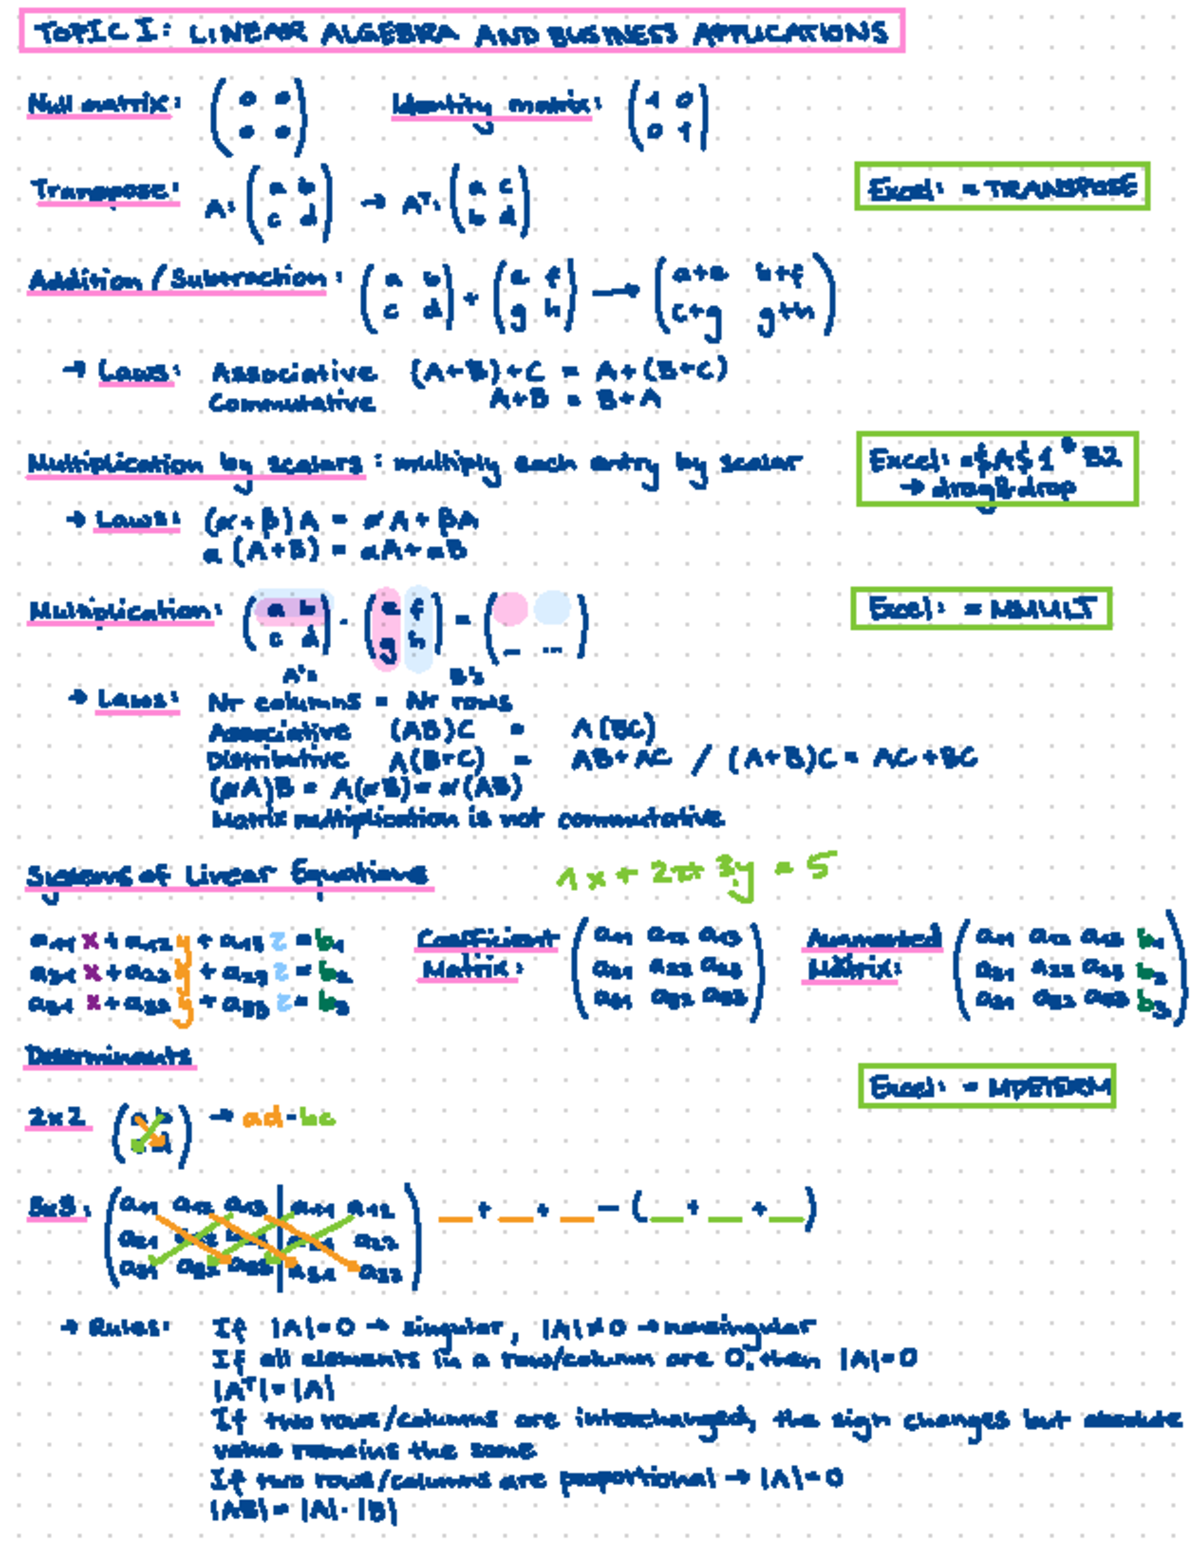 TOPIC I: LINEAR ALGEBRA AND BUSINESS APPLICATIONS
Null matrix: ( 0 0 / 0 0 ) Identity matrix: ( 1 0 / 0 1 )
Transpose: A: ( a b / c d ) → Aᵀ: ( a c / b d ) Excel: = TRANSPOSE
Addition / Subtraction: ( a b / c d ) + ( e f / g h ) → ( a+e b+f / c+g g+h )
→ Laws: Associative (A+B)+C = A+(B+C)
Commutative A+B = B+A
Multiplication by scalars: multiply each entry by scalar Excel: =$A$1*B2
→ drag&drop
→ Laws: (α+β)A = αA+βA
a(A+B) = aA+aB
Multiplication: ( a b / c d ) · ( e f / g h ) = ( _ ... ) Excel: = MMULT
A's B's
→ Laws: Nr columns = Nr rows
Associative (AB)C = A(BC)
Distributive A(B+C) = AB+AC / (A+B)C = AC+BC
(αA)B = A(αB) = α(AB)
Matrix multiplication is not commutative
Systems of Linear Equations 1x + 2z+ 3y = 5
a11 x + a12 y + a13 z = b1 Coefficient ( a11 a12 a13 ) Augmented ( a11 a12 a13 b1 )
a21 x + a22 y + a23 z = b2 Matrix: ( a21 a22 a23 ) Matrix: ( a21 a22 a23 b2 )
a31 x + a32 y + a33 z = b3 ( a31 a32 a33 ) ( a31 a32 a33 b3 )
Determinants
Excel: = MDETERM
2x2 ( a b / c d ) → ad-bc
3x3: ( a11 a12 a13 | a11 a12 ) _ + _ + _ - ( _ + _ + _ )
a21 a22 a23 | a21 a22
a31 a32 a33 | a31 a32
→ Rules: If |A|=0 → singular, |A|≠0 → nonsingular
If all elements in a row/column are 0, then |A|=0
|Aᵀ|=|A|
If two rows/columns are interchanged, the sign changes but absolute
value remains the same
If two rows/columns are proportional → |A|=0
|AB| = |A|·|B|